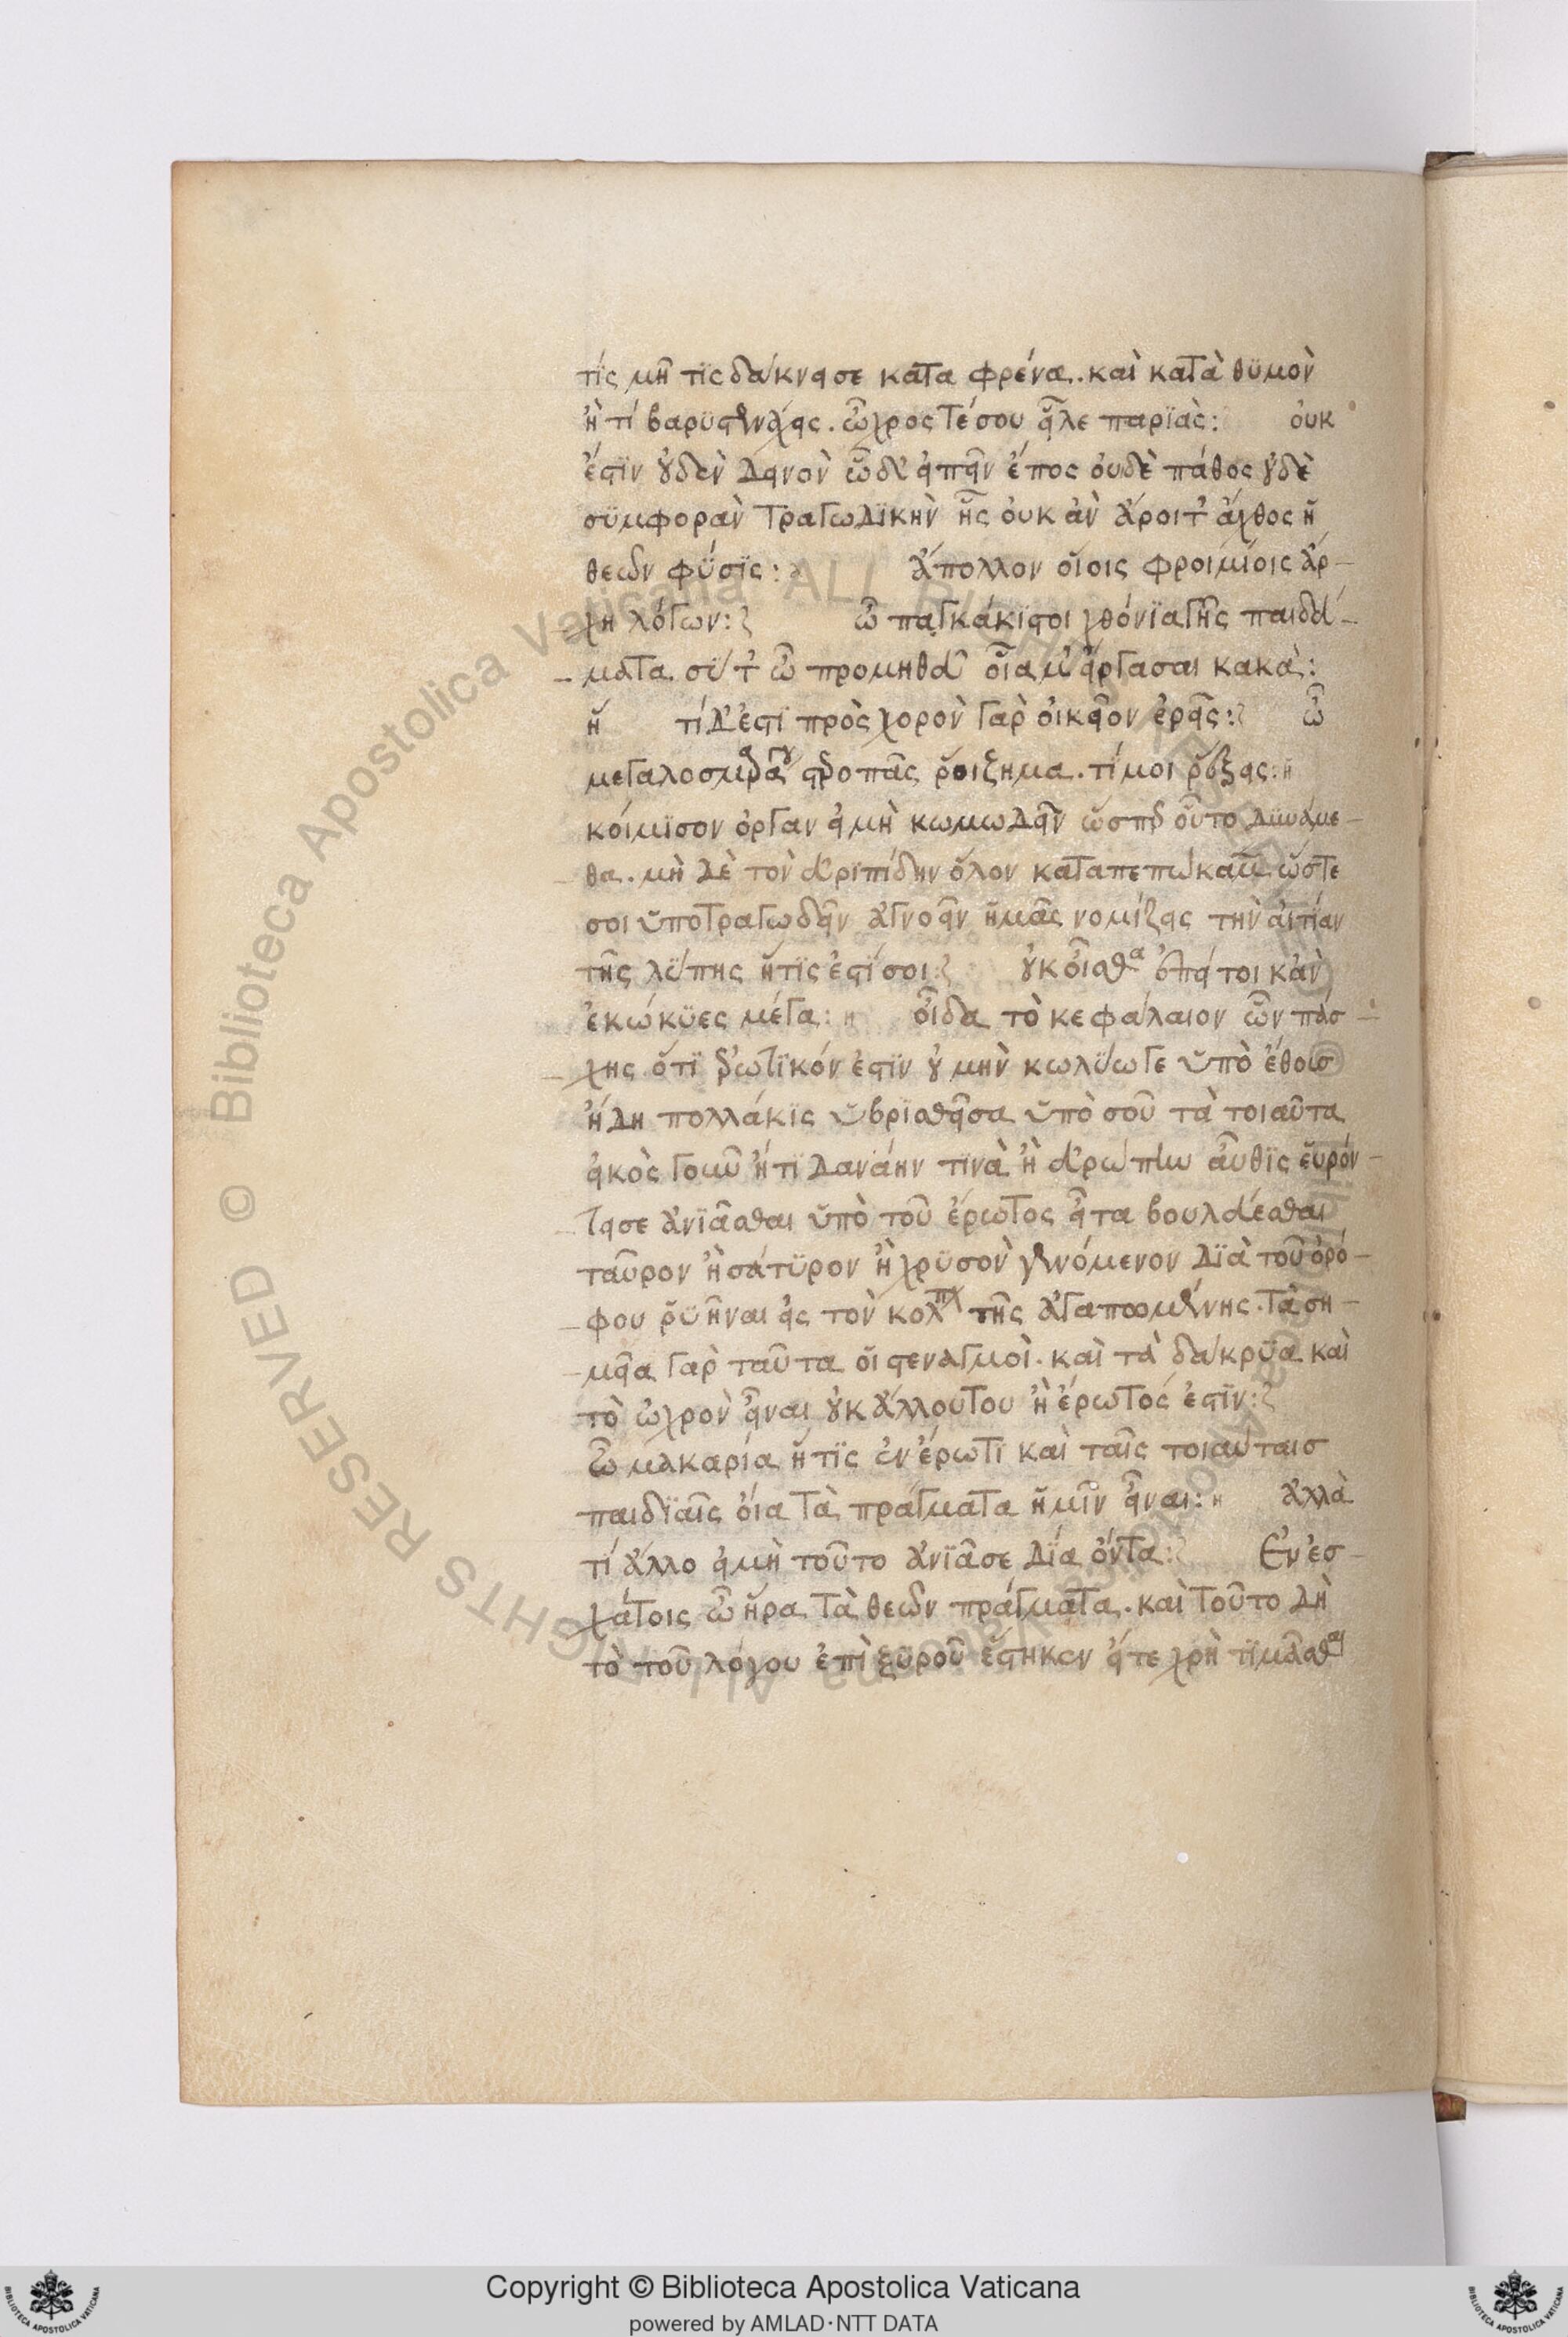 τίς μῆτις δάκνει σε κατα φρένα. καὶ κατὰ θϋμὸν
ἢ τί βαρϋστενάχεις. ὦχρος τέ σου εἷλε παρϊάς: οὐκ
ἔστϊν οὐδὲν δεινὸν ὧδ' εἰπεῖν ἔπος οὐδὲ πάθος οὐδὲ
σϋμφορὰν τραγωδϊκὴν ἧς οὐκ ἂν ἄροιτ' ἄχθος ἡ
θεῶν φύσϊς: Ἄπολλον οἵοις φροιμίοις ἄρ-
χῃ λόγων: ὦ παγκάκϊστοι χθόνϊα γῆς παιδεύ-
ματα. σύ τ' ὦ προμηθεῦ οἷα μ' εἴργασαι κακά:
ἢ τί δ' ἔστϊ πρὸς χορὸν γὰρ οἰκεῖον ἐρεῖς: ὦ
μεγαλοσμαράγου στεροπᾶς ῥοιζημα. τί μοι ῥέξεις:
κοίμϊσον ὀργὰν εἰ μὴ κωμωδεῖν ὥσπερ οὗτο δϋνάμε-
θα. μὴ δὲ τὸν εὐρϊπίδην ὅλον καταπεπώκαμεν ὥστε
σοι ὑποτραγωδεῖν ἀγνοεῖν ἡμᾶς νομίζεις τὴν αἰτίαν
τῆς λύπης ἥτϊς ἐστί σοι: οὐκ οἶσθα ἐπεί τοι κἂν
ἐκώκϋες μέγα: οἶδα τὸ κεφάλαιον ὧν πάσ-
χῃς ὅτϊ ἐρωτϊκόν ἐστϊν οὐ μὴν κωλύω γε ὑπὸ ἔθους
ἤδη πολλάκϊς ὑβρϊσθεῖσα ὑπὸ σοῦ τὰ τοιαῦτα
εἰκὸς γοῦν ἤ τϊ δανάην τϊνὰ ἢ εὐρώπην αὖθϊς εὑρόν-
τα σε ἀνϊᾶσθαι ὑπὸ τοῦ ἔρωτος εἶτα βουλεύεσθαι
ταῦρον ἢ σάτϋρον ἢ χρϋσὸν γενόμενον δϊὰ τοῦ ὀρό-
φου ῥϋῆναι εἰς τὸν κόλπον τῆς ἀγαπωμένης. τὰ ση-
μεῖα γὰρ ταῦτα οἱ στεναγμοὶ. καὶ τὰ δάκρϋα καὶ
τὸ ὠχρὸν εἶναι οὐκ ἄλλου του ἢ ἔρωτός ἐστϊν:
ὦ μακαρία ἥτϊς ἐν ἔρωτι καὶ ταῖς τοιαύταισ
παιδϊαῖς οἴα τὰ πράγματα ἡμῖν εἶναι: ἀλλὰ
τί ἄλλο εἰ μὴ τοῦτο ἀνϊᾶ σε δϊα ὄντα: Ἐν ἐσ-
χάτοις ὦ ἥρα τὰ θεῶν πράγματα. καὶ τοῦτο δὴ
τὸ τοῦ λόγου ἐπὶ ξϋροῦ ἕστηκεν εἴτε χρὴ τϊμᾶσθαι